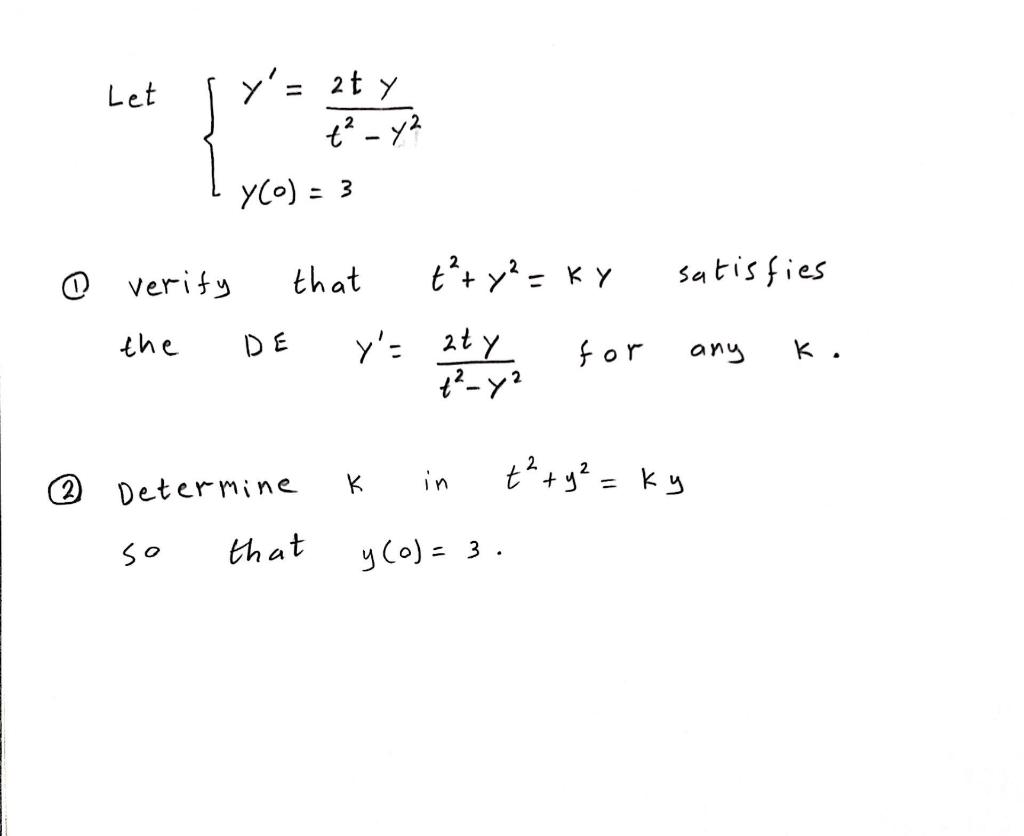 Let { y' = 2t y / t² - y²
y(0) = 3
① verify that t² + y² = k y satisfies
the DE y' = 2t y / t² - y² for any k.
② Determine k in t² + y² = k y
so that y(0) = 3.